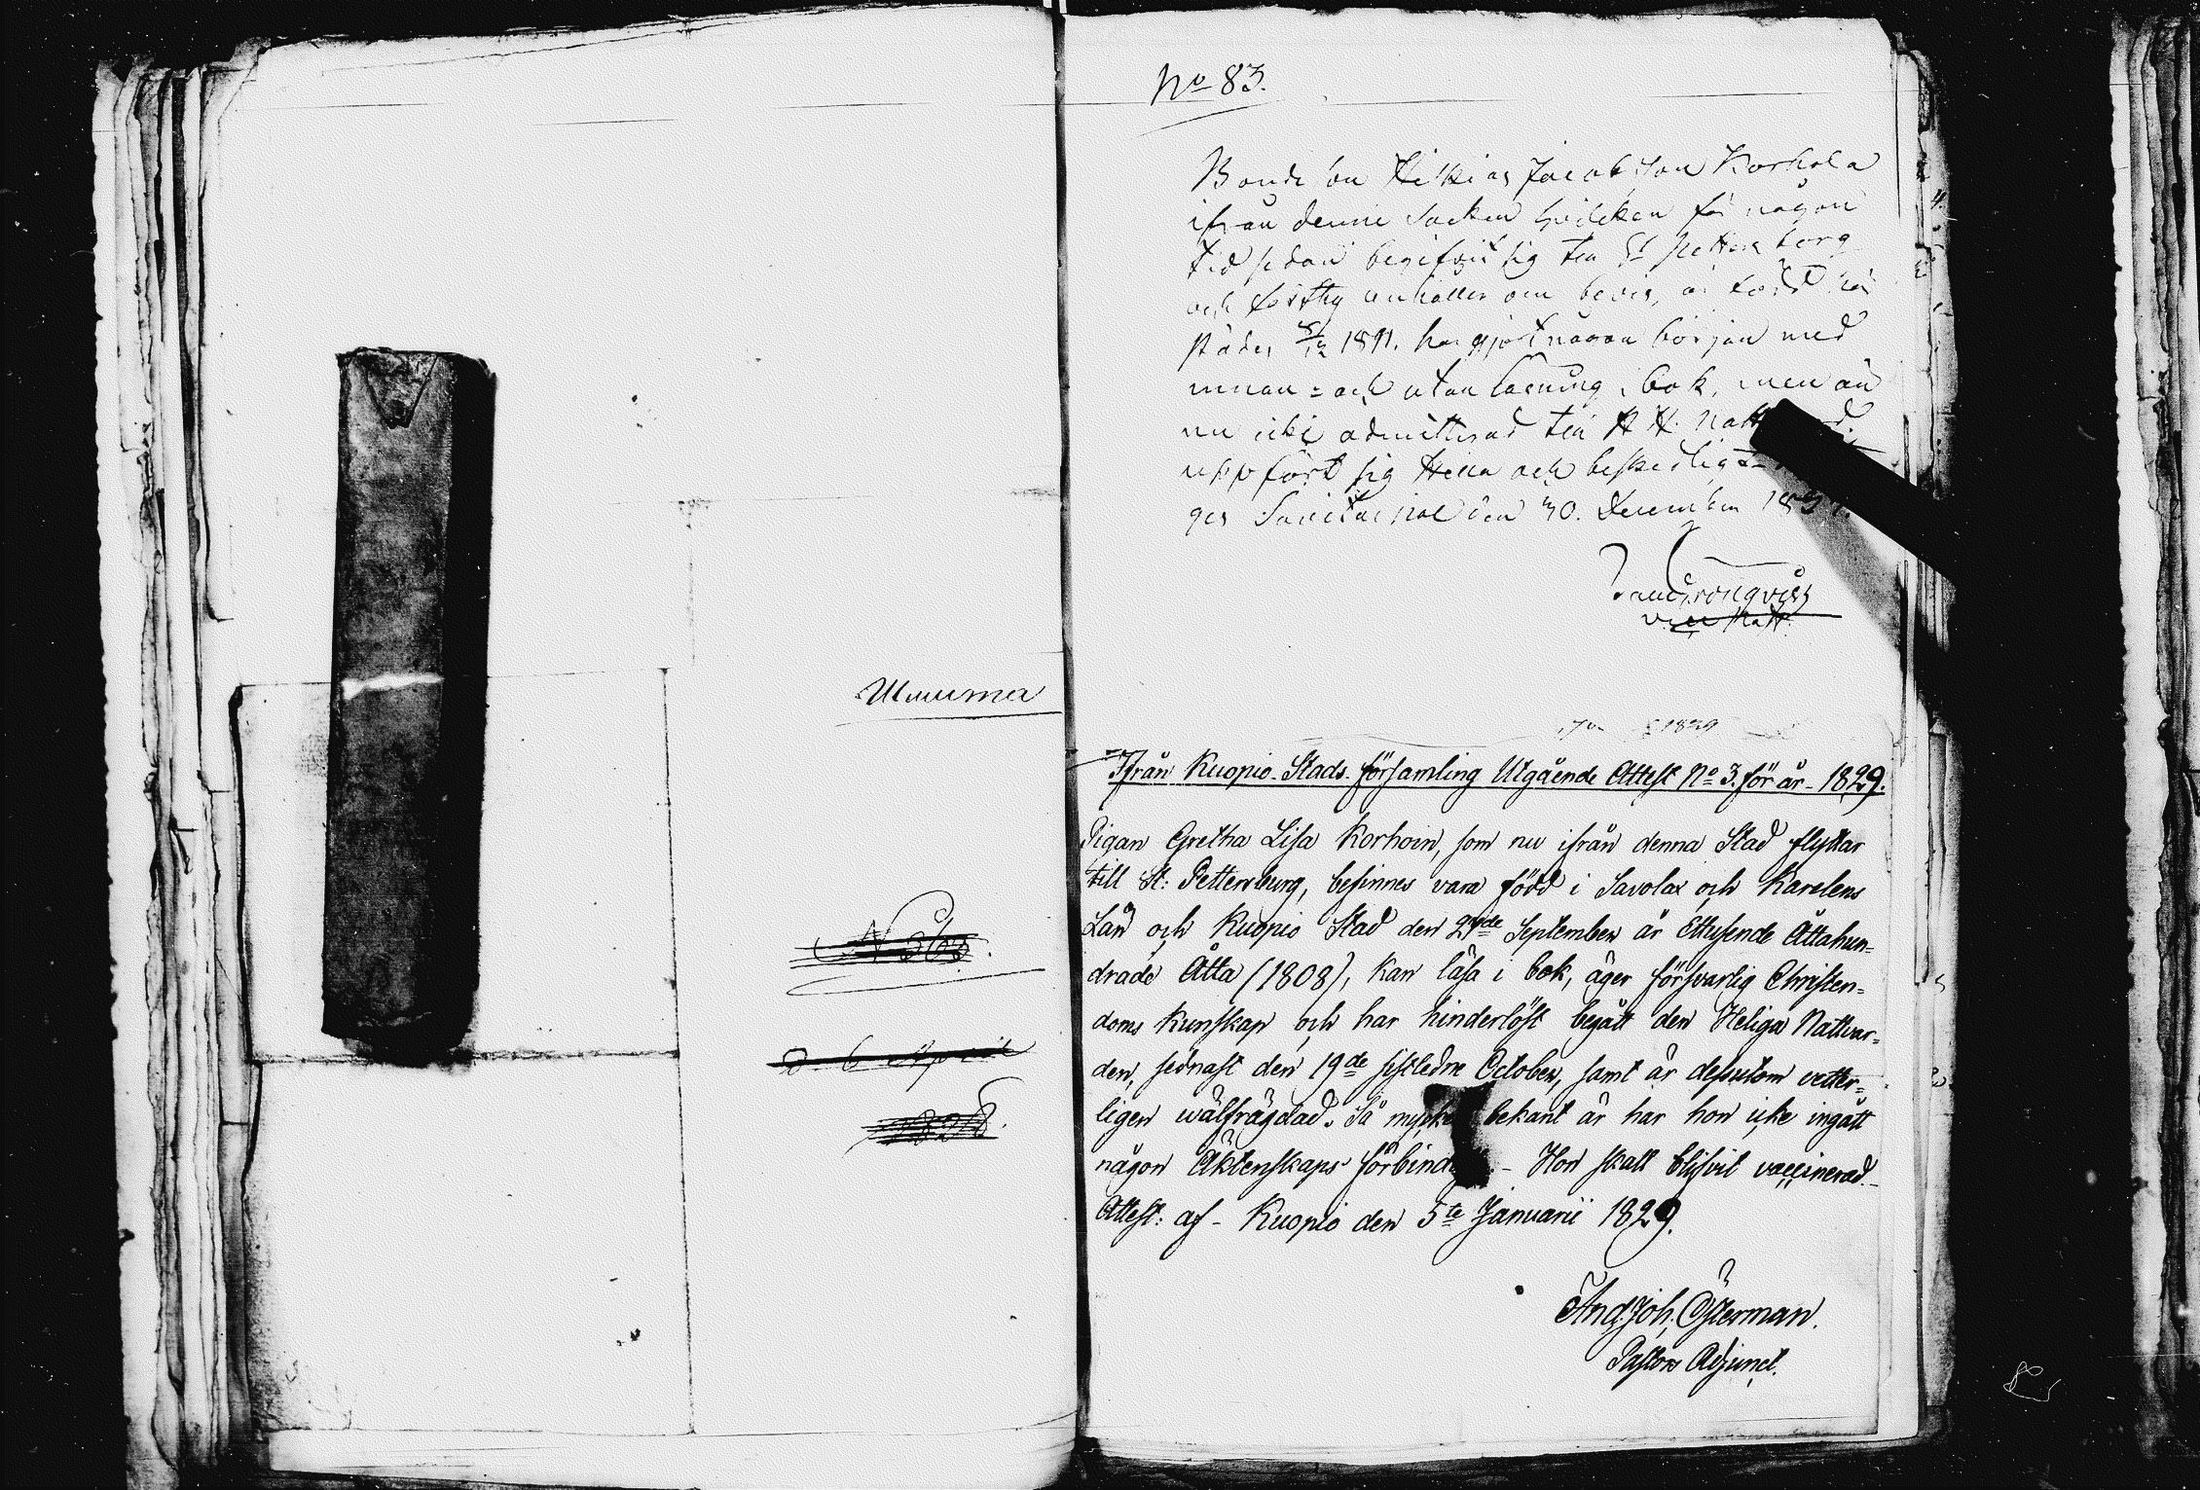 No 83.
Bonde son Hiskias Jacobsson Korhola
ifrån denne Socken hvilcken för någon
tid sedan begifvit sig till St Pettersborg
och anhåller om bevis, är född här
städes 1811. har gjort någon början med
innan- och utan läsning i bok, men än
nu icke admitterad till H. H.
uppfört sig stilla och beskedligt
den 30. December
Ifrån Kuopio Stads församling Utgående Attest No 3. för år 1829.
Pigan Gretha Lisa Korhoin, som nu ifrån denna Stad flyttar
till St: Pettersburg, befinnes vara född i Savolax och Karelens
Län och Kuopio Stad den September år Ettusende Åttahun=
drade Åtta (1808), kan läsa i bok, äger försvarlig Christen=
doms kunskap, och har hinderlöst begått den Heliga Nattvar=
den, sednast den 19de sistledne October, samt är dessutom vetter=
ligen wälfrägdad. Så bekant är har hon icke ingått
någon Äktenskaps Hon skall blifvit vaccinerad.
Attest: af Kuopio den 5te Januarii 1829.
And. Joh. Österman.
Pastors Adjunct.
6 April